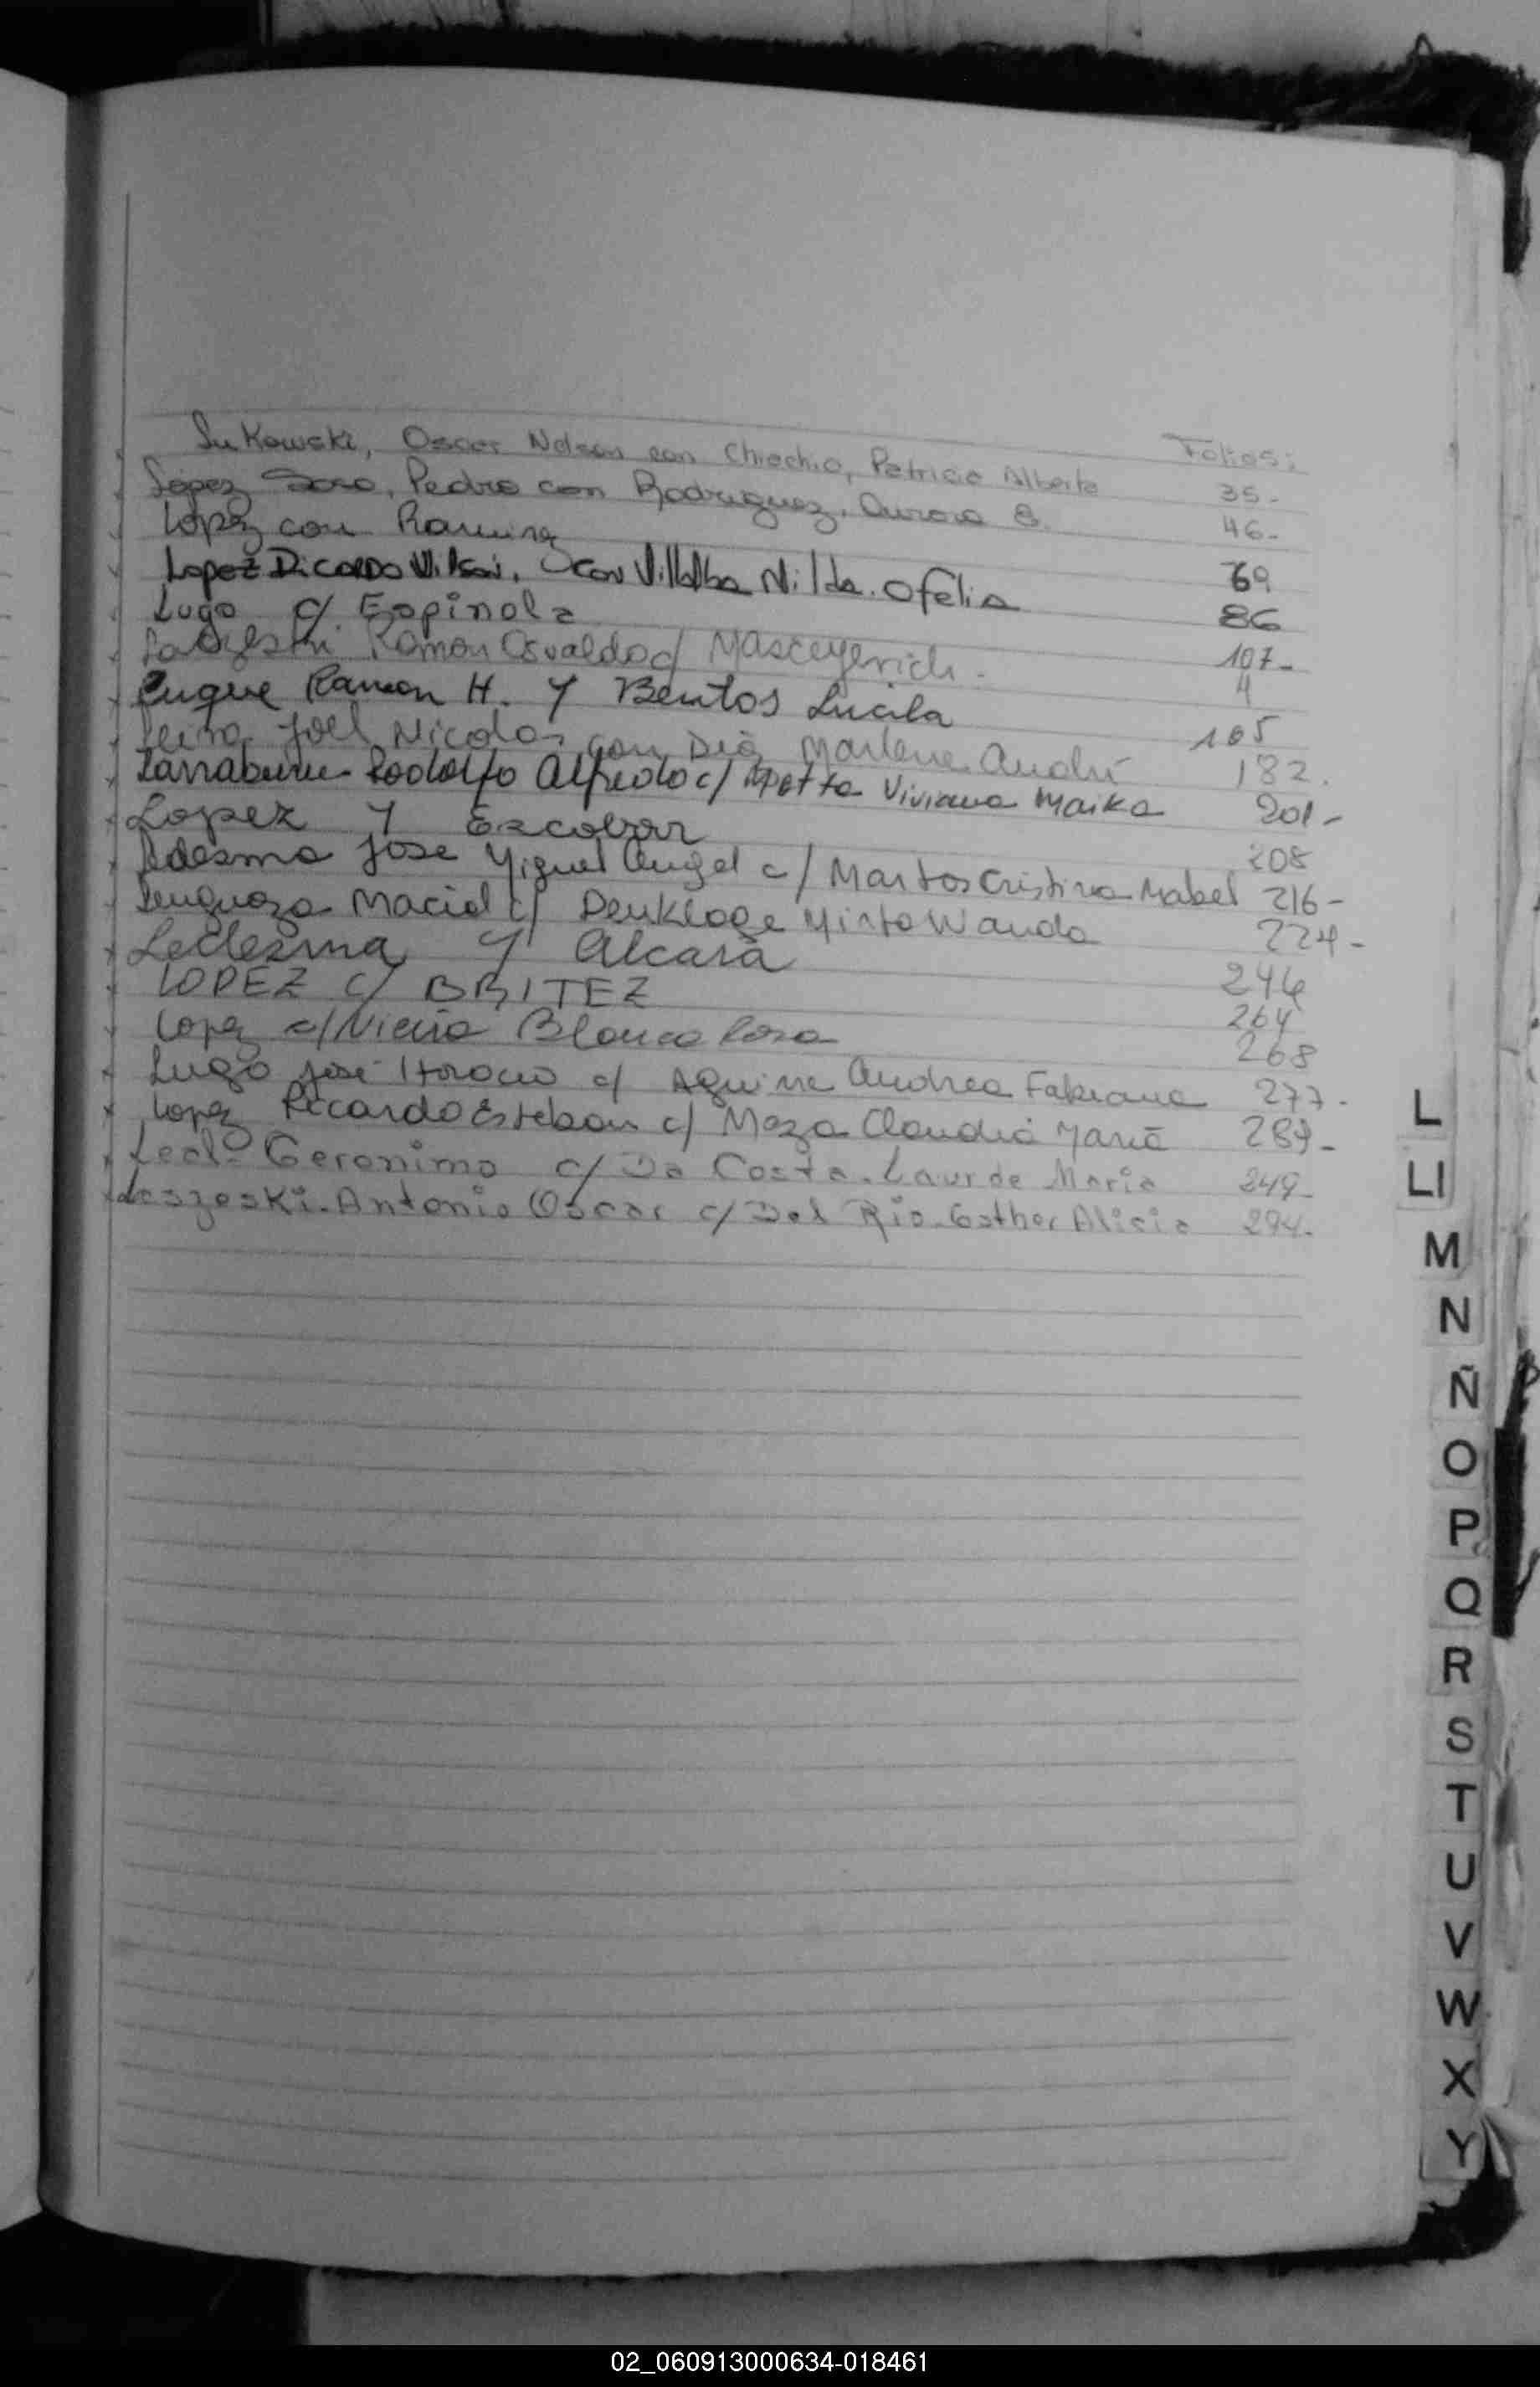 Folios:
Lukowski, Oscar Nelson con Chiechio, Patricia Alberta 35-
López Soso, Pedro con Rodriguez, Aurora E. 46-
Lopez con Ramirez 69
Lopez Ricardo Wilson, con Villalba Nilda Ofelia 86
Lugo c/ Espinola 107-
Ramon Osvaldo c/ 4
Luque Ramon H. y Bentos Lucila 105
Leiva Joel Nicolas con Marlene André 182.
Larraburu Rodolfo Alfredo c/ Apatta Viviana Marisa 201-
Lopez y Escobar 208
Ledesma Jose Miguel Angel c/ Martos Cristina Mabel 216-
Maciel c/ Mirta Wanda 224-
Ledezma y Alcara 244
LOPEZ c/ BRITEZ 264
Lopez c/ Vieira Blanca Rosa 268
Lugo José Horacio c/ Aguirre Andrea Fabiana 277-
Lopez Ricardo Esteban c/ Meza Claudia María 289-
Leal Geronimo c/ Da Costa. Laurde Maria 249-
Leszeski. Antonio Oscar c/ Del Rio. Esther Alicia 294.
L
Ll
M
N
Ñ
O
P
Q
R
S
T
U
V
W
X
Y
02_060913000634-018461